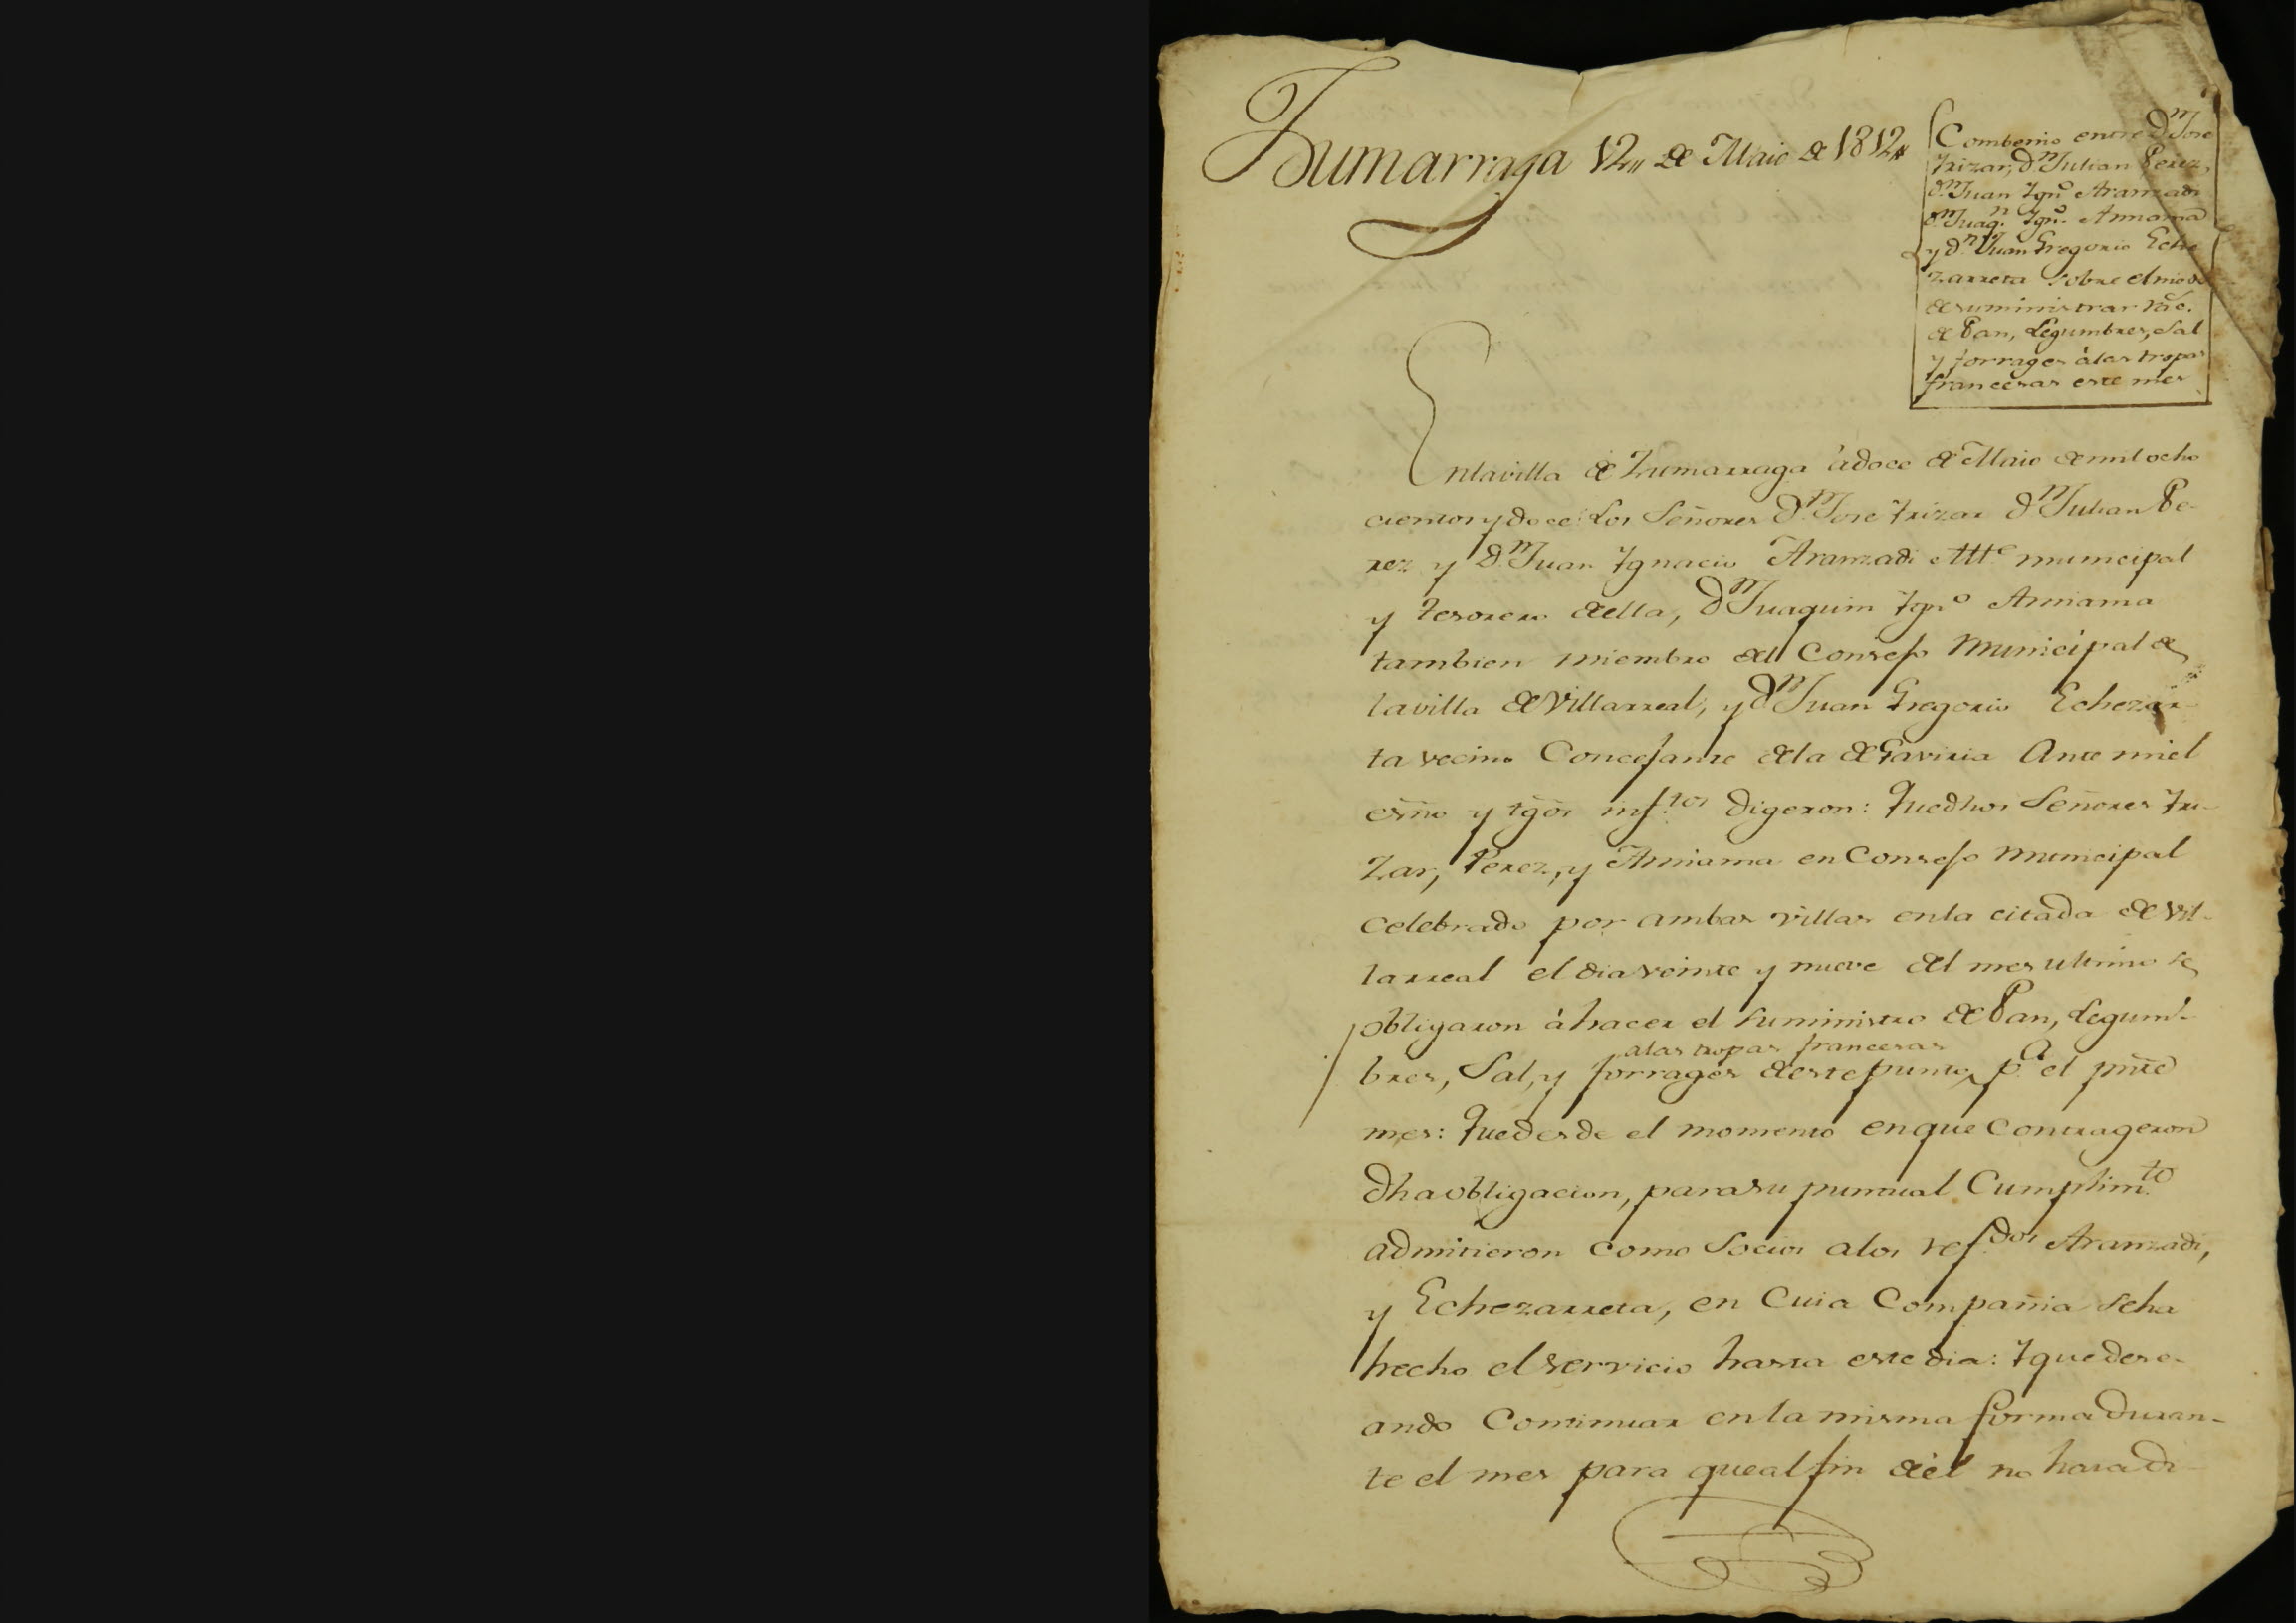 Zumarraga 12,, de Maio de 1812,,
Combenio entre Dn Jose
Yrizar, Dn Julian Perez,
Dn Juan Ygno Aranzadi
Dn Juaqn Ygno Arinama
y Dn Juan Gregorio Eche
zarreta sobre el modo
de suministrar
de Pan, Legumbres, Sal
y forrages à las tropas
francesas este mes
En la villa de Zumarraga à doce de Maio de mil ocho
cientos y doce: Los Señores Dn Jose Yrizar Dn Julian Pe-
rez y Dn Juan Ygnacio Aranzadi municipal
y tesorero de ella, Dn Juaquin Ygno Arinama
tambien miembro del Consejo Municipal de
la villa de Villarreal, y Dn Juan Gregorio Echezar-
ta vecino Concejante de la de Gaviria Ante mi el
esño y tgõs infrtos digeron: Que dhos Señores Yri-
zar, Perez, y Arinama en Consejo municipal
celebrado por ambas villas en la citada de Vil-
larreal el dia veinte y nueve del mes ultimo se
obligaron à hacer el suministro de Pan, Legum-
a las tropas francesas
bres, Sal, y forrages de este punto, pa el pñte
mes: Que desde el momento en que contrageron
dha obligacion, para su puntual Cumplimto
admitieron como Socios a los refdos Aranzadi,
y Echezarreta, en cuia Compañia se ha
hecho el servicio hasta este dia: Y que dese-
ando Continuar en la misma forma duran-
te el mes para que al fin de èl no haia di-